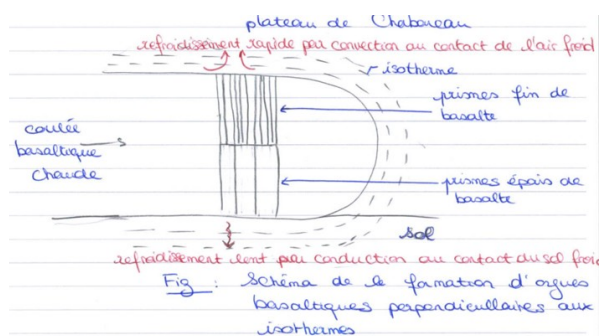 plateau de Chabareau
refraidissement rapide par convection au contact de l'air froid
isotherme
prismes fin de
basalte
coulée
basaltique
chaude
prismes épais de
basalte
sol
refraidissement lent par conduction au contact du sol froid
Fig : Schéma de la formation d'orgues
basaltiques perpendicullaires aux
isothermes